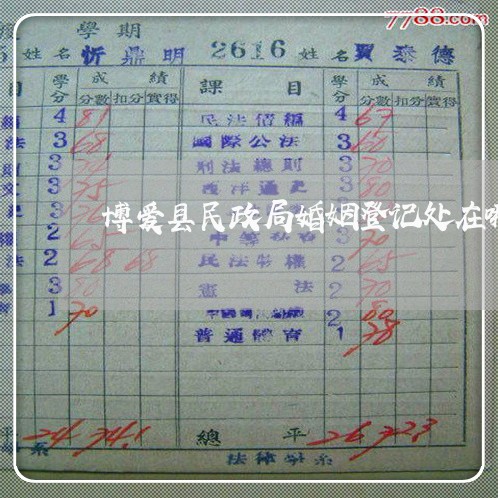 7788.com
度 學期
5 姓名 忻鼎明 2616 姓名 賈泰德
目 學分 成績 課目 學分 成績
分數 扣分 實得 分數 扣分 實得
4 81 民法債編 4 67
法 3 68 國際公法 3 60
3 刑法總則 3 70
3 75 西洋通史 3 80
博爱县民政局婚姻登记处在哪
2 65 3 70
法 2 68 68 民法物權 2 65
3 80 憲法 2 70
育 1 70 2 80
普通體育 1 78
平 24 74.1 總平 26 72.3
系 法律學系